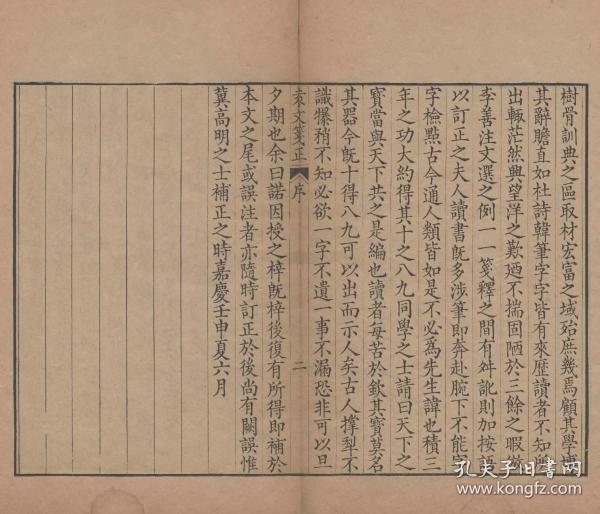 樹骨訓典之區取材宏富之域殆庶幾焉顧其學博
其辭贍直如杜詩韓筆字字皆有來歷讀者不知所
出輒茫然興望洋之歎廼不揣固陋於三餘之暇倣
李善注文選之例一一箋釋之間有舛訛則加按語
以訂正之夫人讀書旣多涉筆即奔赴腕下不能字
字檢點古今通人類皆如是不必為先生諱也積三
年之功大約得其十之八九同學之士請曰天下之
寶當與天下共之是編也讀者每苦於欽其寶莫名
其器今旣十得八九可以出而示人矣古人撐犁不
識犦矟不知必欲一字不遺一事不漏恐非可以旦
袁文箋正
序
二
夕期也余曰諾因授之梓旣梓後復有所得即補於
本文之尾或誤注者亦隨時訂正於後尚有闕誤惟
冀高明之士補正之時嘉慶壬申夏六月
孔夫子旧书网
www.kongfz.com